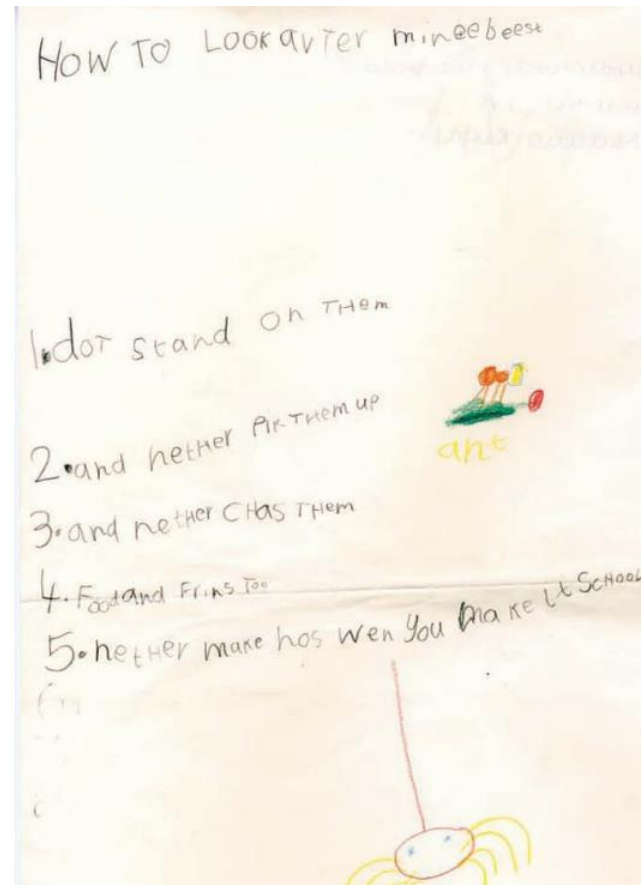 HOW TO LOOK avTer mineebeest
1. doT stand on THem
2. and netHer Pik THem up
ant
3. and netHer CHas THem
4. Food and Frins Too
5. netHer make hos wen you make it SCHOOL